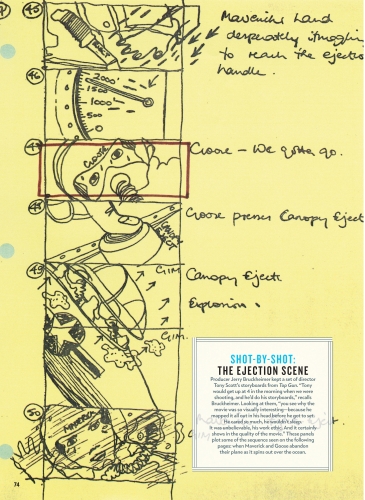 45
Mavericks hand
desperately
to reach the ejection
handle.
46
2000'
1500
1000'
500
0
47
GOOSE
Goose – We gotta go.
48
Goose presses Canopy Eject
49
G.I.M.
Canopy Eject
Explosion.
G.I.M.
50
SHOT-BY-SHOT:
THE EJECTION SCENE
Producer Jerry Bruckheimer kept a set of director
Tony Scott's storyboards from Top Gun. "Tony
would get up at 4 in the morning when we were
shooting, and he'd do his storyboards," recalls
Bruckheimer. Looking at them, "you see why the
movie was so visually interesting—because he
mapped it all out in his head before he got to set.
He cared so much, he wouldn't sleep.
It was unbelievable, his work ethic. And it certainly
shows in the quality of the movie." These panels
plot some of the sequence seen on the following
pages: when Maverick and Goose abandon
their plane as it spins out over the ocean.
74